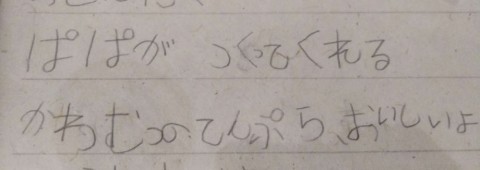 ぱぱが つくってくれる
かわむつのてんぷら、おいしいよ